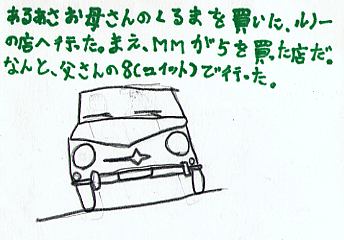 あるあさお母さんのくるまを買いに、ルノー
の店へ行った。まえ、MMが5を買った店だ。
なんと、父さんの8(ロイット)で行った。